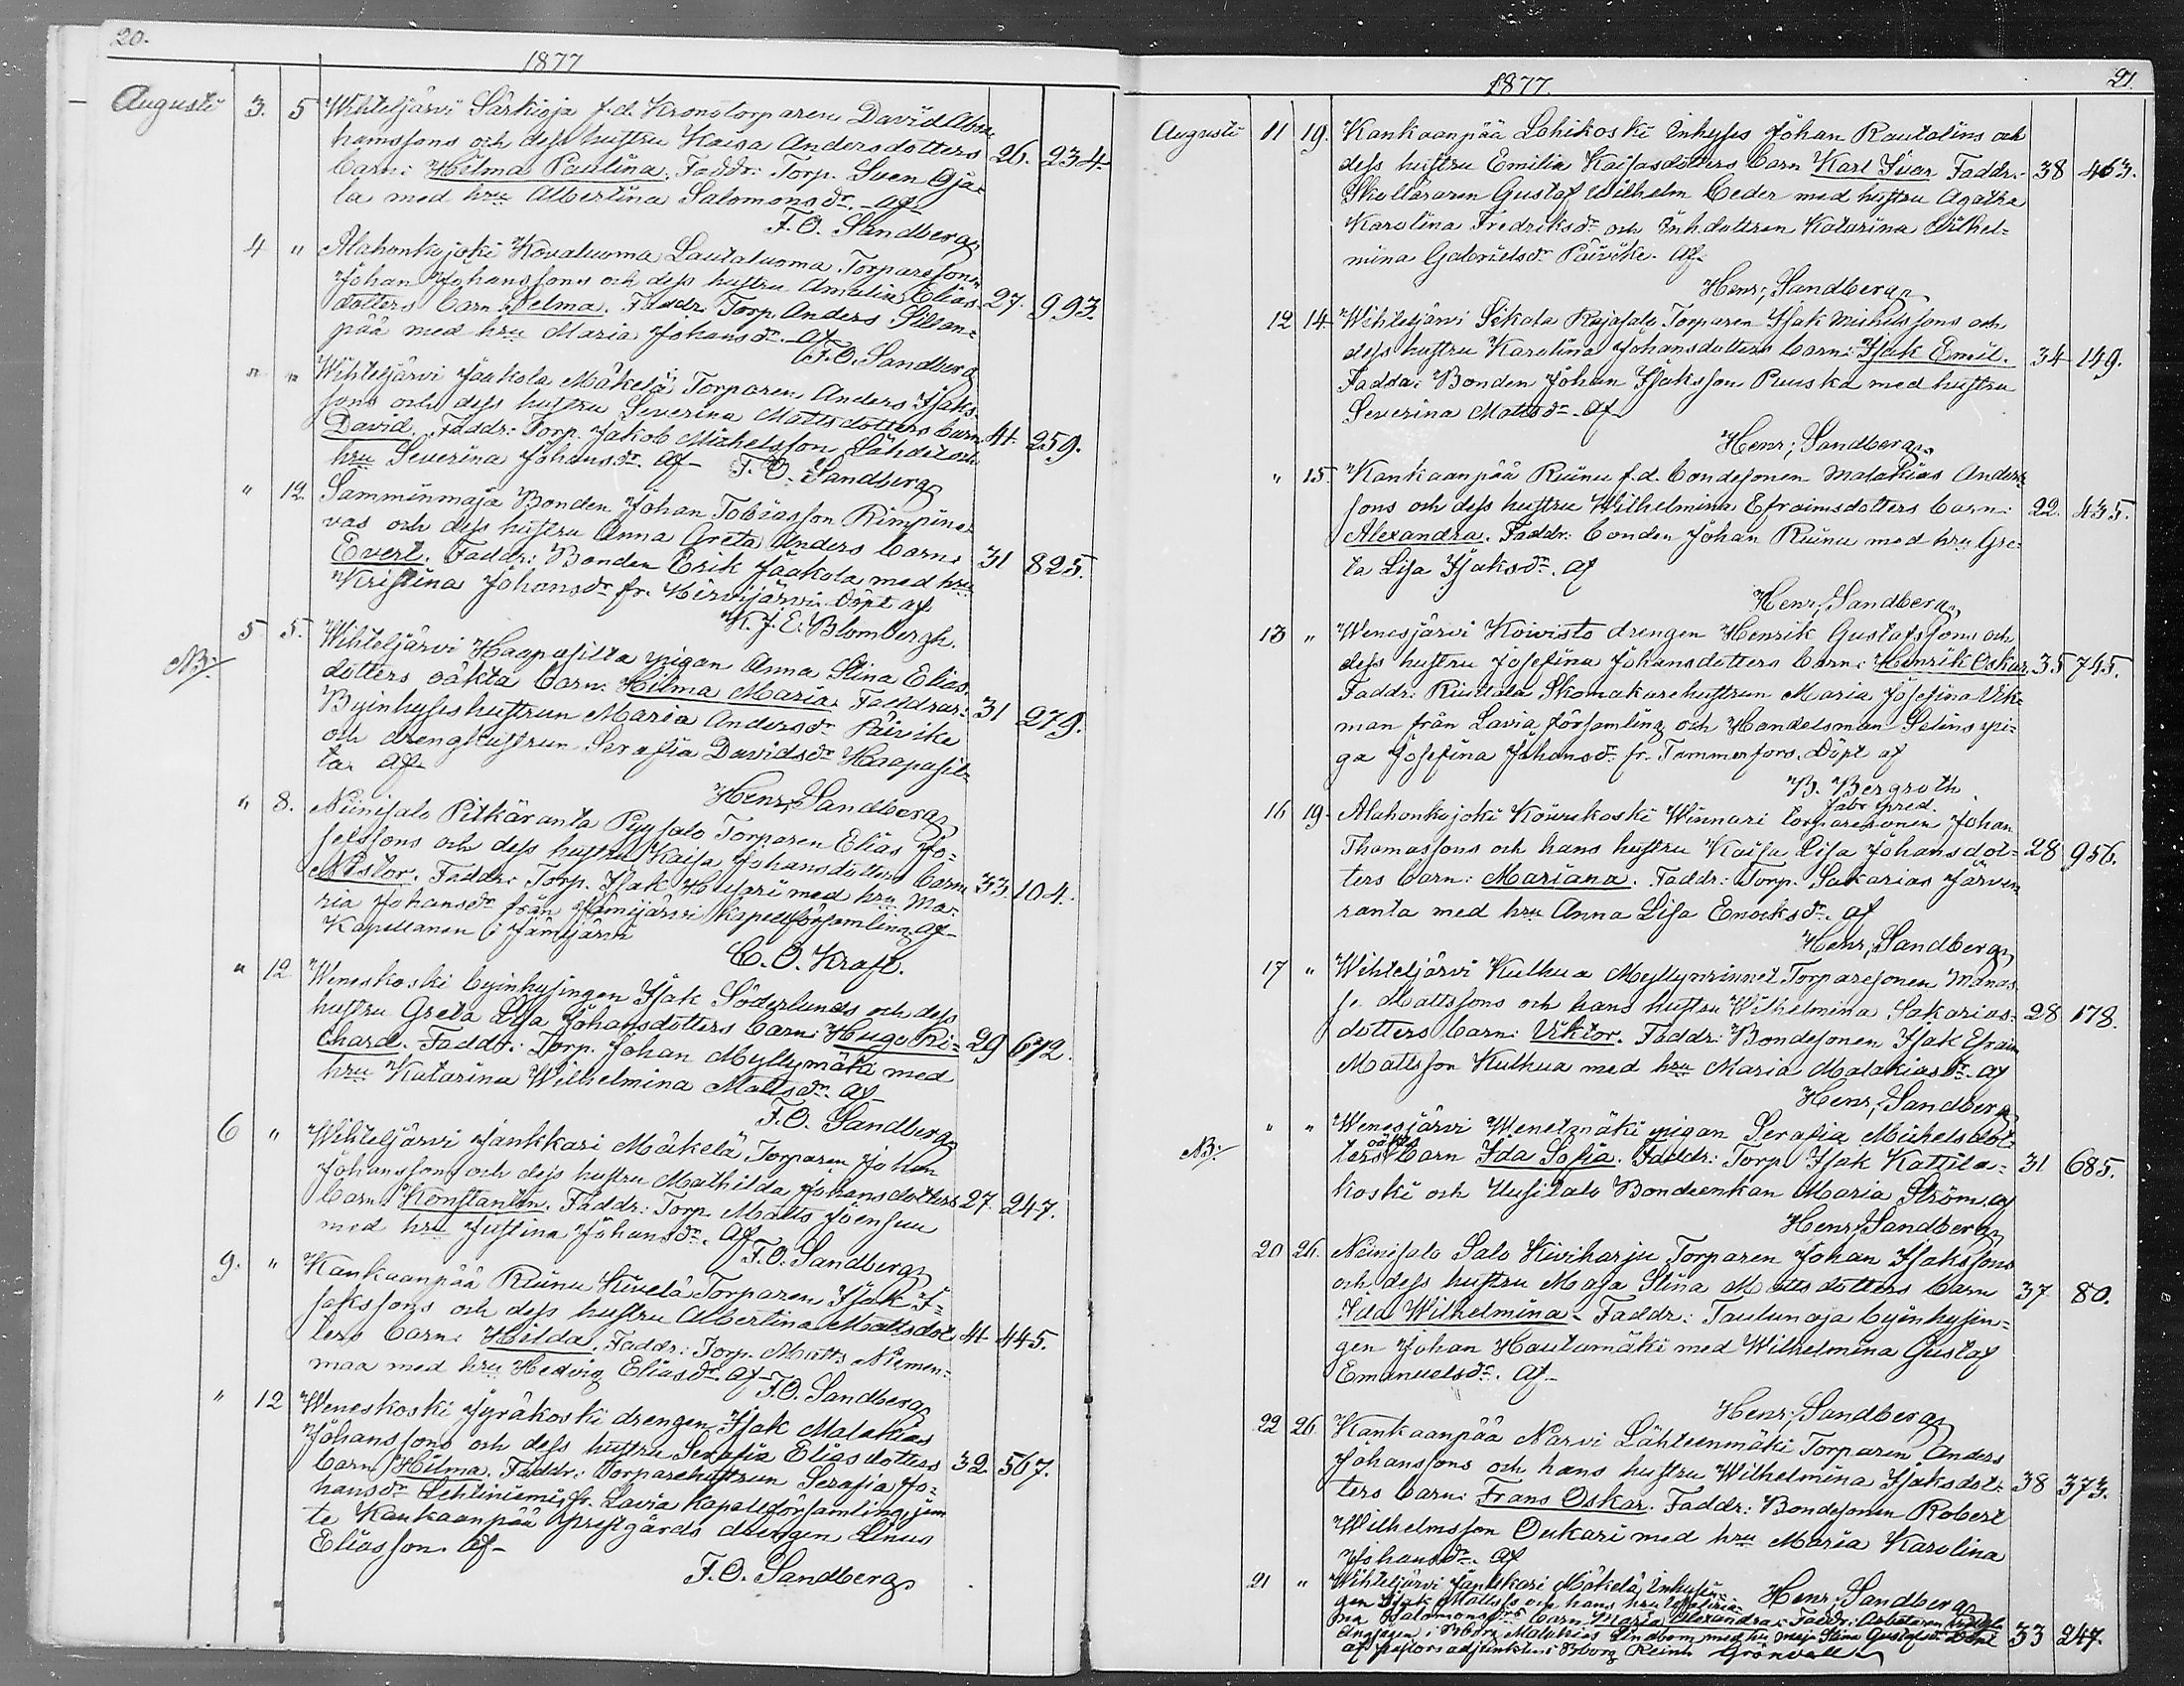 20.
1877
Augusti 3. 5 Wihteljärvi Särkioja f.d. Kronotorparen David Abra-
hamssons och dess hustru Kaisa Andersdotters 26. 234.
barn: Hilma Paulina. Faddr: Torp. Sven Oja-
la med hru Albertina Salomonsdr. af
F.O. Sandberg
4 " Alahonkojoki Kovaluoma Lautaluoma Torparesonen
Johan Johanssons och dess hustru Amalia Elias-
dotters barn: Selma. Faddr. Torp. Anders Sillan- 27. 993.
pää med hru Maria Johansdr. af
F.O. Sandberg
" " Wihteljärvi Jaakola Mäkelä Torparen Anders Isaks-
sons och dess hustru Severina Mattsdotters barn 41 259.
David. Faddr: Torp. Jakob Michelsson Lähdet och
hru Severina Johansdr. af- F.O. Sandberg
" 12. Samminmaja Bonden Johan Tobiasson Rimpine-
vas och dess hustru Anna Greta Anders barn: 31 825.
Evert. Faddr: Bonden Erik Jaakola med hru
Kristina Johansdr fr. Hirvijärvi. Döpt af
K.J.E. Blombergh.
NB: 5 5. Wihteljärvi Haapasilta pigan Anna Stina Elias-
dotters oäkta barn: Hilma Maria. Faddrar: 31 279.
Byinhyseshustrun Maria Andersdr Päivike
och drenghustrun Serafia Davidsdr Haapasil-
ta. af-
Henr; Sandberg
" 8. Niinisalo Pitkäranta Pyysalo Torparen Elias Jo-
sefssons och dess hustru Kaisa Johansdotters barn 33. 104.
Nestor. Faddr: Torp. Isak Huhari med hru Ma-
ria Johansdr från Jämijärvi Kapellförsamling. af-
Kapellanen i Jämijärvi
C.O. Kraft.
" 12 Weneskoski byinhysingen Isak Söderlunds och dess
hustru Greta Lisa Johansdotters barn: Hugo Ri- 29 612.
chard. Faddr: Torp. Johan Myllymäki med
hru Katarina Wilhelmina Mattsdr. af-
F.O. Sandberg
6 " Wihteljärvi Jankkari Mäkelä Torparen Johan
Johanssons och dess hustru Mathilda Johansdotters 27. 247.
barn: Konstantin. Faddr: Torp. Matts Joensuu
med hru Justina Johansdr. af
F.O. Sandberg
9. " Kankaanpää Ruinu Kivelä Torparen Isak I-
sakssons och dess hustru Albertina Mattsdot- 41 445.
ters barn: Hilda. Faddr: Torp. Matts Niemen-
maa med hru Hedvig Eliasdr. af-
F.O. Sandberg
" 12 Weneskoski Jyräkoski drengen Isak Malakias
Johanssons och dess hustru Serafia Eliasdotters 32. 567.
barn Hilma. Faddr: Torparehustrun Serafia Jo-
hansdr Lehtiniemi fr. Lavia Kapellförsamling, jem-
te Kankaanpää prestgårds drengen Linus
Eliasson. af-
F.O. Sandberg
1877. 21.
Augusti 11 19. Kankaanpää Lohikoski Inhyses Johan Rautalins och
dess hustru Emilia Kaisasdotters barn Karl Ivar Faddr.- 38 463.
Skolläraren Gustaf Wilhelm Ceder med hustru Agatha
Karolina Fredriksdr och Inh.dottren Katarina Wilhel-
mina Gabrielsdr Päivike. af-
Henr; Sandberg
12 14 Wihteljärvi Sikala Rajasalo Torparen Isak Michelssons och
dess hustru Karolina Johansdotters barn: Isak Emil. 34 149.
Fadda: Bonden Johan Isaksson Puuska med hustru
Severina Mattsdr. af
Henr; Sandberg
" 15. Kankaanpää Ruinu f.d. bondesonen Malakias Anders-
sons och dess hustru Wilhelmina Efraimsdotters barn: 22. 435.
Alexandra. Faddr: bonden Johan Ruinu med hru Gre-
ta Lisa Isaksdr. af
Henr; Sandberg
13 " Wenesjärvi Koivisto drengen Henrik Gustafssons och
dess hustru Josefina Johansdotters barn: Henrik Oskar. 35 745.
Faddr: Skomakarehustrun Maria Josefina Vik-
man från Lavia församling och Handelsman Selins pi-
ga Josefina Johansdr fr. Tammerfors. Döpt af
B. Bergroth
fabr. pred.
16 19. Alahonkojoki Köwekoski Winnari torparesonen Johan
Thomassons och hans hustru Kaisa Lisa Johansdot- 28 956.
ters barn: Mariana. Faddr: Torp. Sakarias Järven
ranta med hru Anna Lisa Enocksdr. af
Henr; Sandberg
17 " Wihteljärvi Kulhua Myllynrinnet Torparesonen Manas
se Mattssons och hans hustru Wilhelmina Sakarias- 28 178.
dotters barn: Viktor. Faddr: Bondesonen Isak Efraim
Mattsson Kulhua med hru Maria Malakiasdr. af
Henr; Sandberg
NB: " " Wenesjärvi Wenetmäki pigan Serafia Michelsdot-
ters oäkta barn Ida Sofia. Faddr: Torp Isak Kattila- 31 685.
koski och Uusitalo Bondeenkan Maria Ström. af
Henr; Sandberg
20 26. Niinisalo Salo Kiviharju Torparen Johan Isakssons
och dess hustru Maja Stina Mattsdotters barn 37 80.
Ida Wilhelmina- Faddr: Taulunoja byinhysin-
gen Johan Hautamäki med Wilhelmina Gustaf
Emanuelsdr. af-
Henr; Sandberg
22 26 Kankaanpää Narvi Lähteenmäki Torparen Anders
Johanssons och hans hustru Wilhelmina Isaksdot- 38 373.
ters barn: Frans Oskar. Faddr: Bondesonen Robert
Wilhelmsson Oukari med hru Maria Karolina
Johansdr. af
Henr; Sandberg
21 " Wihteljärvi Jankkari Mäkelä Inhysin-
gen Isak Mattss och hans hru
na Salomonsdrs barn Maria Alexandra. Faddr: Arbetaren
Ångsågen i Bborg Malakias Lindbom med hu Maja Stina Gustafsdr Döpt 33 247.
af pastorsadjunkten i Bborg Reinh Grönvall